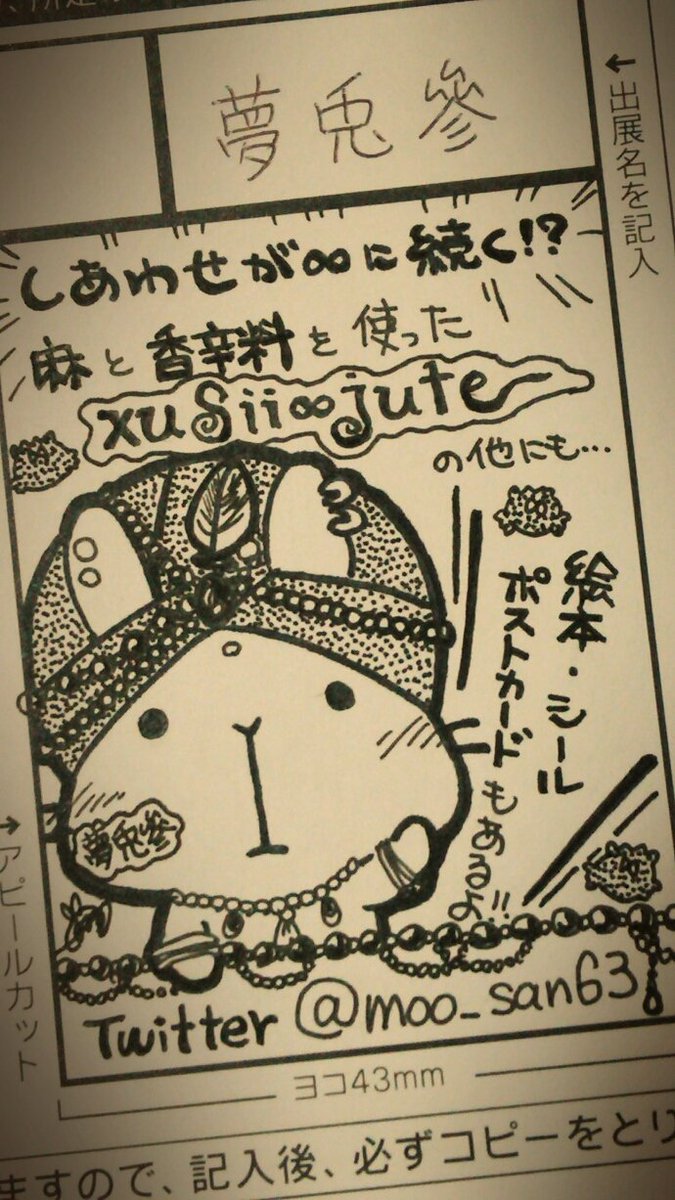 夢兎參
←出展名を記入
しあわせが∞に続く!?
麻と香辛料を使った
xusii∞jute
の他にも…
絵本・シール
ポストカードもあるよ!!
夢兎參
Twitter @moo_san63
→アピールカット
ヨコ43mm
ますので、記入後、必ずコピーをとり